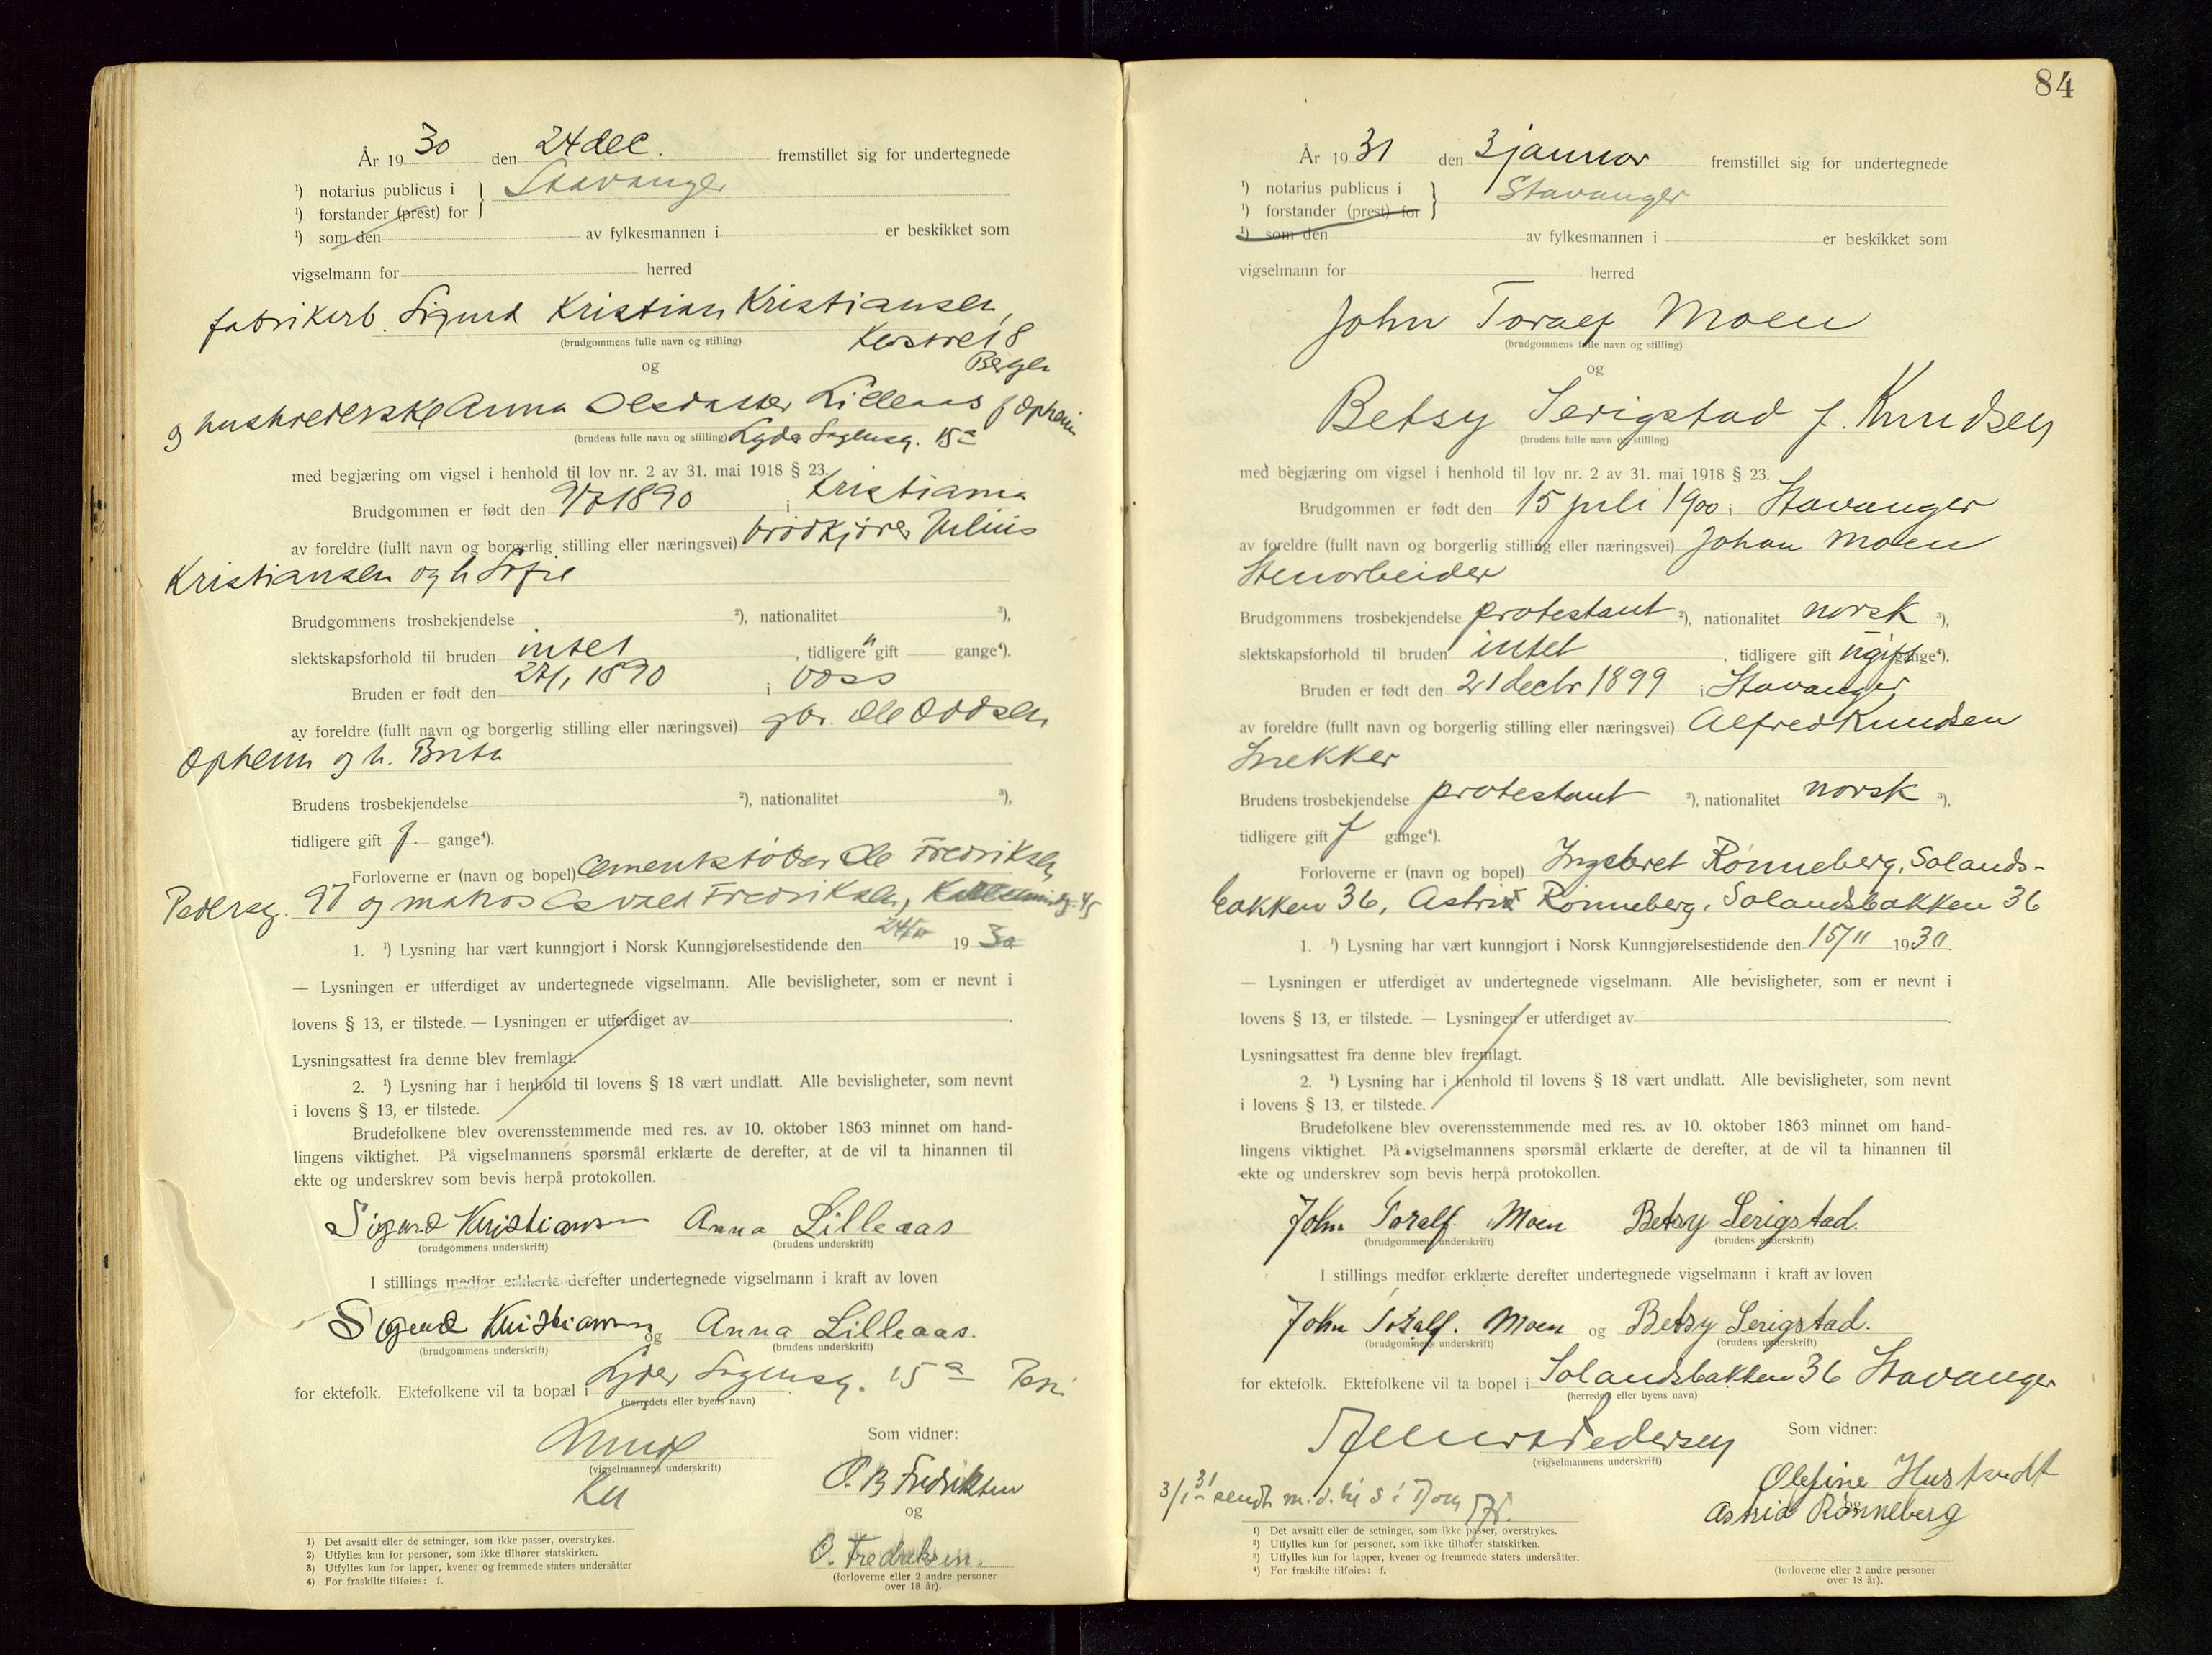 År 19 30 den 24 dec. fremstillet sig for undertegnede
¹) notarius publicus i } Stavanger
¹) forstander (prest) for
¹) som den av fylkesmannen i er beskikket som
vigselmann for herred
fabrikarb. Sigurd Kristian Kristiansen,
(brudgommens fulle navn og stilling)
og
Bergen
og Anna Olsdatter Lilleaas f Opheim
(brudens fulle navn og stilling) 15 a
med begjæring om vigsel i henhold til lov nr. 2 av 31. mai 1918 § 23.
Brudgommen er født den 9/7 1890 i Kristiania
av foreldre (fullt navn og borgerlig stilling eller næringsvei) brødkjører Julius
Kristiansen og h. Sofie
Brudgommens trosbekjendelse ²), nationalitet ³),
slektskapsforhold til bruden intet , tidligere gift gange⁴).
Bruden er født den 27/1 1890 i Voss
av foreldre (fullt navn og borgerlig stilling eller næringsvei) gbr. Ole Oddsen
Opheim og h. Brita
Brudens trosbekjendelse ²), nationalitet ³),
tidligere gift f. gange⁴).
Forloverne er (navn og bopel) cementstøber Ole Fredriksen
Pedersg. 97 og matros Fredriksen, 45
1. ¹) Lysning har vært kunngjort i Norsk Kunngjørelsestidende den 19 30
— Lysningen er utferdiget av undertegnede vigselmann. Alle bevisligheter, som er nevnt i
lovens § 13, er tilstede. — Lysningen er utferdiget av .
Lysningsattest fra denne blev fremlagt.
2. ¹) Lysning har i henhold til lovens § 18 vært undlatt. Alle bevisligheter, som nevnt
i lovens § 13, er tilstede.
Brudefolkene blev overensstemmende med res. av 10. oktober 1863 minnet om hand-
lingens viktighet. På vigselmannens spørsmål erklærte de derefter, at de vil ta hinannen til
ekte og underskrev som bevis herpå protokollen.
Sigurd Kristiansen Anna Lilleaas
(brudgommens underskrift) (brudens underskrift)
I stillings medfør erklærte derefter undertegnede vigselmann i kraft av loven
Sigurd Kristiansen og Anna Lilleaas.
(brudgommens underskrift) (brudens underskrift)
for ektefolk. Ektefolkene vil ta bopæl i 15 a
(herredets eller byens navn)
Som vidner:
(vigselmannens underskrift)
O. B Fredriksen
og
O. Fredriksen.
(forloverne eller 2 andre personer
over 18 år).
1) Det avsnitt eller de setninger, som ikke passer, overstrykes.
2) Utfylles kun for personer, som ikke tilhører statskirken.
3) Utfylles kun for lapper, kvener og fremmede staters undersåtter
4) For fraskilte tilføies: f.
84
År 19 31 den 3 januar fremstillet sig for undertegnede
¹) notarius publicus i } Stavanger
¹) forstander (prest) for
¹) som den av fylkesmannen i er beskikket som
vigselmann for herred
John Toralf Moen
(brudgommens fulle navn og stilling)
og
Betsy Serigstad f. Knudsen
(brudens fulle navn og stilling)
med begjæring om vigsel i henhold til lov nr. 2 av 31. mai 1918 § 23.
Brudgommen er født den 15 juli 1900 i Stavanger
av foreldre (fullt navn og borgerlig stilling eller næringsvei) Johan Moen
Stenarbeider
Brudgommens trosbekjendelse protestant ²), nationalitet norsk ³),
slektskapsforhold til bruden intet , tidligere gift ugift gange⁴).
Bruden er født den 21 decbr 1899 i Stavanger
av foreldre (fullt navn og borgerlig stilling eller næringsvei) Alfred Knudsen
Snekker
Brudens trosbekjendelse protestant ²), nationalitet norsk ³),
tidligere gift f gange⁴).
Forloverne er (navn og bopel) Ingebret Rønneberg, Solands-
bakken 36, Astrid Rønneberg, Solandsbakken 36
1. ¹) Lysning har vært kunngjort i Norsk Kunngjørelsestidende den 15/11 1930.
— Lysningen er utferdiget av undertegnede vigselmann. Alle bevisligheter, som er nevnt i
lovens § 13, er tilstede. — Lysningen er utferdiget av .
Lysningsattest fra denne blev fremlagt.
2. ¹) Lysning har i henhold til lovens § 18 vært undlatt. Alle bevisligheter, som nevnt
i lovens § 13, er tilstede.
Brudefolkene blev overensstemmende med res. av 10. oktober 1863 minnet om hand-
lingens viktighet. På vigselmannens spørsmål erklærte de derefter, at de vil ta hinannen til
ekte og underskrev som bevis herpå protokollen.
John Toralf Moen Betsy Serigstad.
(brudgommens underskrift) (brudens underskrift)
I stillings medfør erklærte derefter undertegnede vigselmann i kraft av loven
John Toralf. Moen og Betsy Serigstad.
(brudgommens underskrift) (brudens underskrift)
for ektefolk. Ektefolkene vil ta bopel i Solandsbakken 36 Stavanger
(herredets eller byens navn)
Pedersen Som vidner:
(vigselmannens underskrift)
Olefine Hustvedt
3/1 31 sendt m. d.
og
Astrid Rønneberg
¹) Det avsnitt eller de setninger, som ikke passer, overstrykes.
²) Utfylles kun for personer, som ikke tilhører statskirken.
³) Utfylles kun for lapper, kvener og fremmede staters undersåtter.
⁴) For fraskilte tilføies: f.
(forloverne eller 2 andre personer
over 18 år).